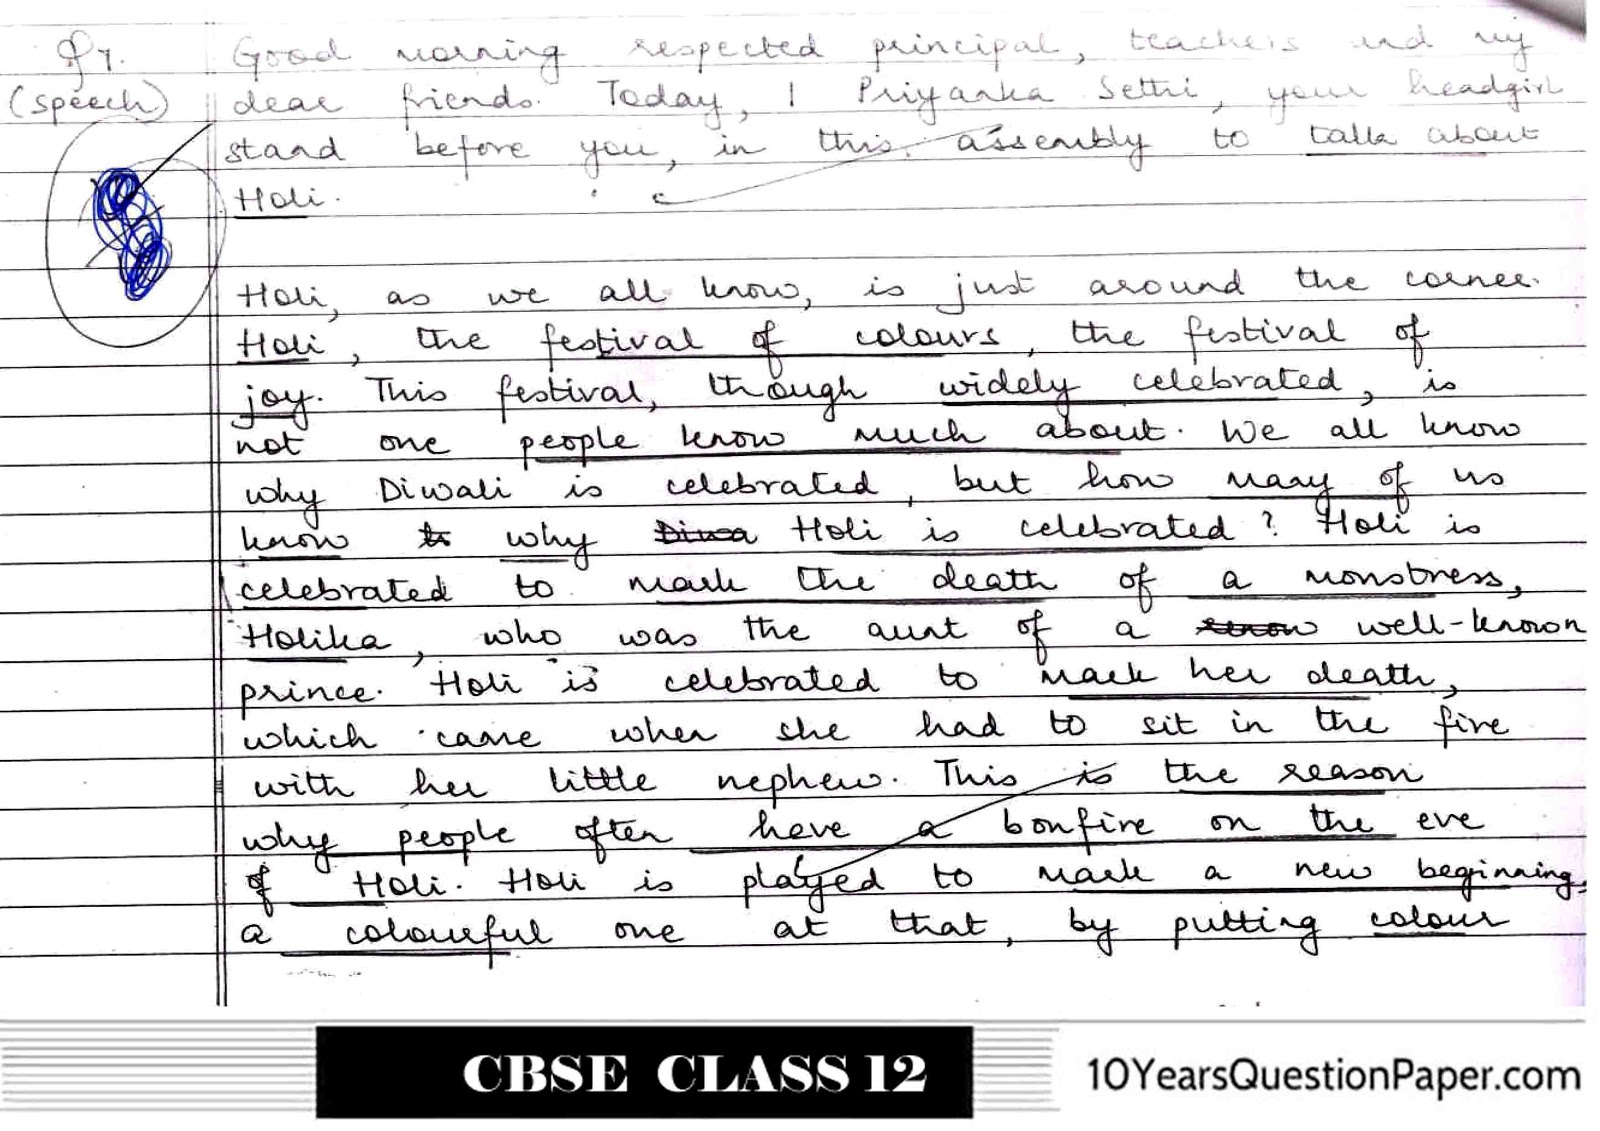 Q7. Good morning respected principal, teachers and my
(speech) dear friends. Today, I Priyanka Sethi, your headgirl
stand before you, in this assembly to talk about
Holi.
Holi, as we all know, is just around the corner.
Holi, the festival of colours, the festival of
joy. This festival, though widely celebrated, is
not one people know much about. We all know
why Diwali is celebrated, but how many of us
know why Holi is celebrated? Holi is
celebrated to mark the death of a monstress,
Holika, who was the aunt of a well-known
prince. Holi is celebrated to mark her death,
which came when she had to sit in the fire
with her little nephew. This is the reason
why people often have a bonfire on the eve
of Holi. Holi is played to mark a new beginning,
a colourful one at that, by putting colour
CBSE CLASS 12
10YearsQuestionPaper.com